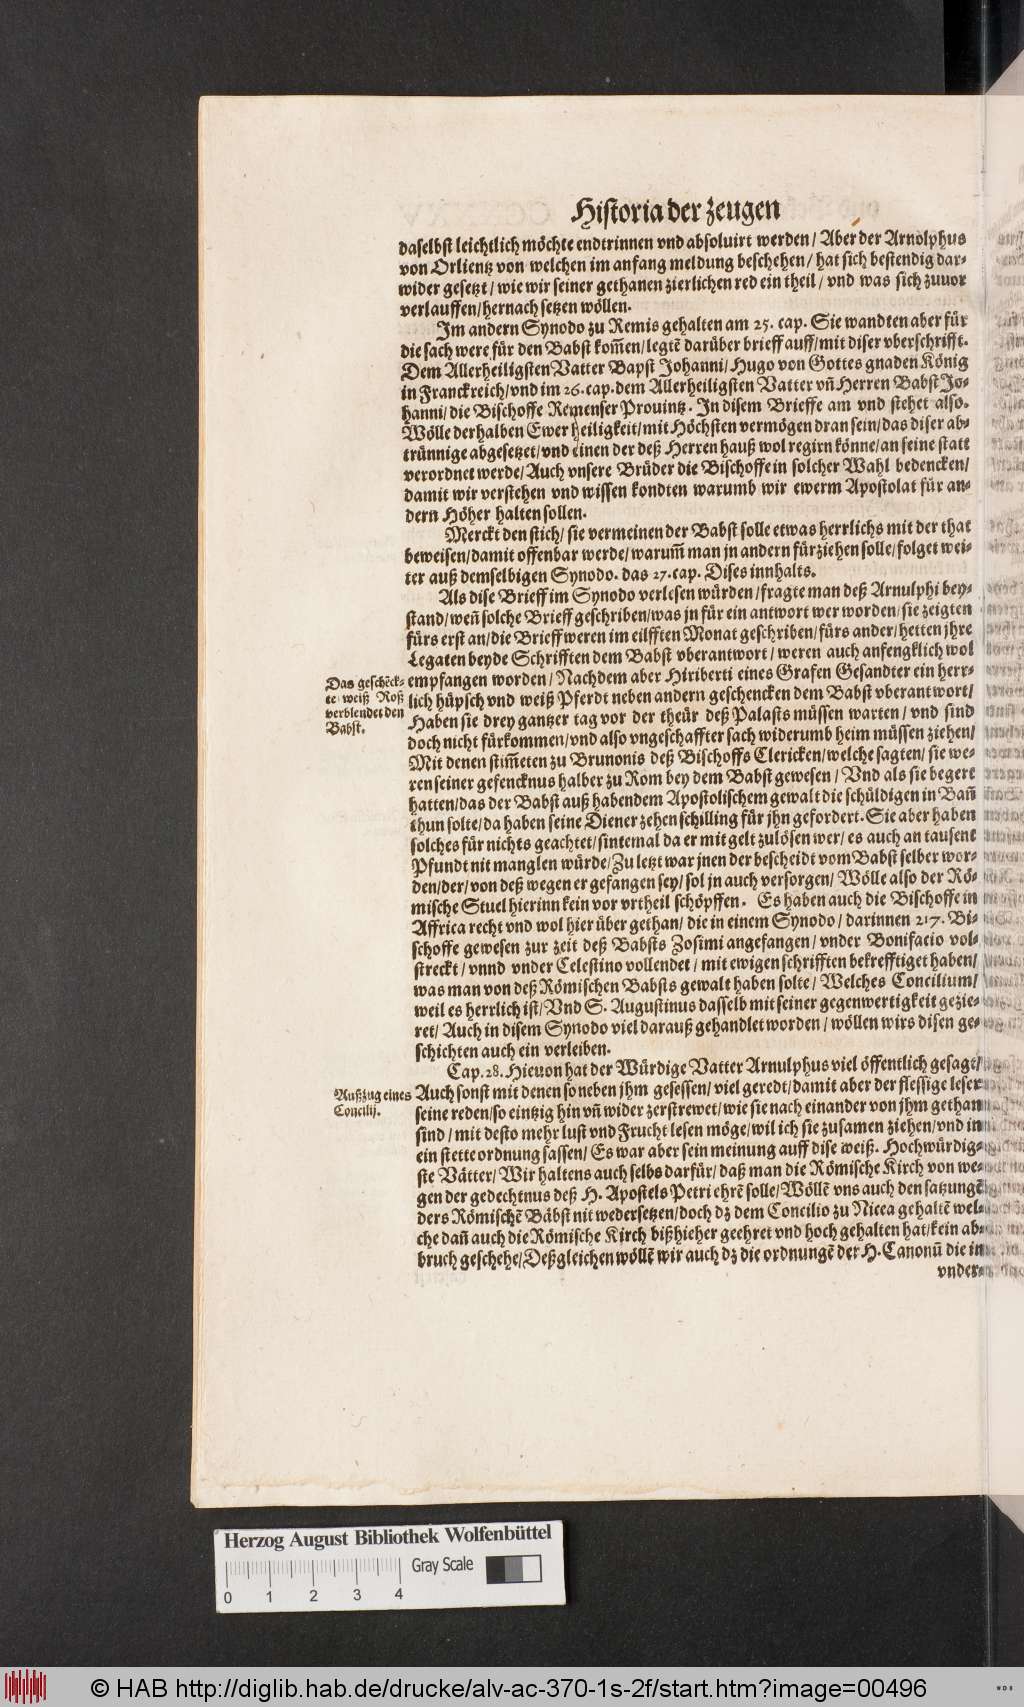 Historia der zeugen
daselbst leichtlich möchte endtrinnen vnd absoluirt werden/ Aber der Arnolphus
von Orlientz von welchen im anfang meldung beschehen/ hat sich bestendig dar-
wider gesetzt/ wie wir seiner gethanen zierlichen red ein theil/ vnd was sich zuuor
verlauffen/ hernach setzen wöllen.
Im andern Synodo zu Remis gehalten am 25. cap. Sie wandten aber für
die sach were für den Babst kom̃en/ legtẽ darüber brieff auff/ mit diser vberschrifft.
Dem Allerheiligsten Vatter Bapst Johanni/ Hugo von Gottes gnaden König
in Franckreich/ vnd im 26. cap. dem Allerheiligsten Vatter vñ Herren Babst Jo-
hanni/ die Bischoffe Remenser Prouintz. In disem Brieffe am vnd stehet also.
Wölle derhalben Ewer heiligkeit/ mit Höchsten vermögen dran sein/ das diser ab-
trünnige abgesetzet/ vnd einen der deß Herren hauß wol regirn könne/ an seine statt
verordnet werde/ Auch vnsere Brüder die Bischoffe in solcher Wahl bedencken/
damit wir verstehen vnd wissen kondten warumb wir ewerm Apostolat für an-
dern Höher halten sollen.
Merckt den stich/ sie vermeinen der Babst solle etwas herrlichs mit der that
beweisen/ damit offenbar werde/ warum̃ man jn andern fürziehen solle/ folget wei-
ter auß demselbigen Synodo. das 27. cap. Dises innhalts.
Als dise Brieff im Synodo verlesen würden/ fragte man deß Arnulphi bey-
stand/ weñ solche Brieff geschriben/ was jn für ein antwort wer worden/ sie zeigten
fürs erst an/ die Brieff weren im eilfften Monat geschriben/ fürs ander/ hetten jhre
Legaten beyde Schrifften dem Babst vberantwort/ weren auch anfengklich wol
empfangen worden/ Nachdem aber Hiriberti eines Grafen Gesandter ein herr-
lich hüpsch vnd weiß Pferdt neben andern geschencken dem Babst vberantwort/
Haben sie drey gantzer tag vor der theür deß Palasts müssen warten/ vnd sind
doch nicht fürkommen/ vnd also vngeschaffter sach widerumb heim müssen ziehen/
Mit denen stim̃eten zu Brunonis deß Bischoffs Clericken/ welche sagten/ sie we-
ren seiner gefencknus halber zu Rom bey dem Babst gewesen/ Vnd als sie begert
hatten/ das der Babst auß habendem Apostolischem gewalt die schüldigen in Bañ
thun solte/ da haben seine Diener zehen schilling für jhn gefordert. Sie aber haben
solches für nichts geachtet/ sintemal da er mit gelt zulösen wer/ es auch an tausent
Pfundt nit manglen würde/ Zu letzt war jnen der bescheidt vom Babst selber wor-
den/ der/ von deß wegen er gefangen sey/ sol jn auch versorgen/ Wölle also der Rö-
mische Stuel hierinn kein vor vrtheil schöpffen. Es haben auch die Bischoffe in
Affrica recht vnd wol hier über gethan/ die in einem Synodo/ darinnen 217. Bi-
schoffe gewesen zur zeit deß Babsts Zosimi angefangen/ vnder Bonifacio vol-
streckt/ vnnd vnder Celestino vollendet/ mit ewigen schrifften bekrefftiget haben/
was man von deß Römischen Babsts gewalt haben solte/ Welches Concilium/
weil es herrlich ist/ Vnd S. Augustinus dasselb mit seiner gegenwertigkeit gezie-
ret/ Auch in disem Synodo viel darauß gehandlet worden/ wöllen wirs disen ge-
schichten auch ein verleiben.
Das geschẽck-
te weiß Roß
verblendet den
Babst.
Cap. 28. Hieuon hat der Würdige Vatter Arnulphus viel öffentlich gesagt/
Auch sonst mit denen so neben jhm gesessen/ viel geredt/ damit aber der flessige leser
seine reden/ so eintzig hin vñ wider zerstrewet/ wie sie nach einander von jhm gethan
sind/ mit desto mehr lust vnd Frucht lesen möge/ wil ich sie zusamen ziehen/ vnd in
ein stette ordnung fassen/ Es war aber sein meinung auff dise weiß. Hochwürdig-
ste Vätter/ Wir haltens auch selbs darfür/ daß man die Römische Kirch von we-
gen der gedechtnus deß H. Apostels Petri ehrẽ solle/ Wöllẽ vns auch den satzungẽ
ders Römischẽ Bäbst nit wedersetzen/ doch dz dem Concilio zu Nicea gehaltẽ wel-
che dañ auch die Römische Kirch bißhieher geehret vnd hoch gehalten hat/ kein ab-
bruch geschehe/ Deßgleichen wöllẽ wir auch dz die ordnungẽ der H. Canonũ die in
vnder-
Außzug eines
Concilij.
Herzog August Bibliothek Wolfenbüttel
Gray Scale
0 1 2 3 4
© HAB http://diglib.hab.de/drucke/alv-ac-370-1s-2f/start.htm?image=00496